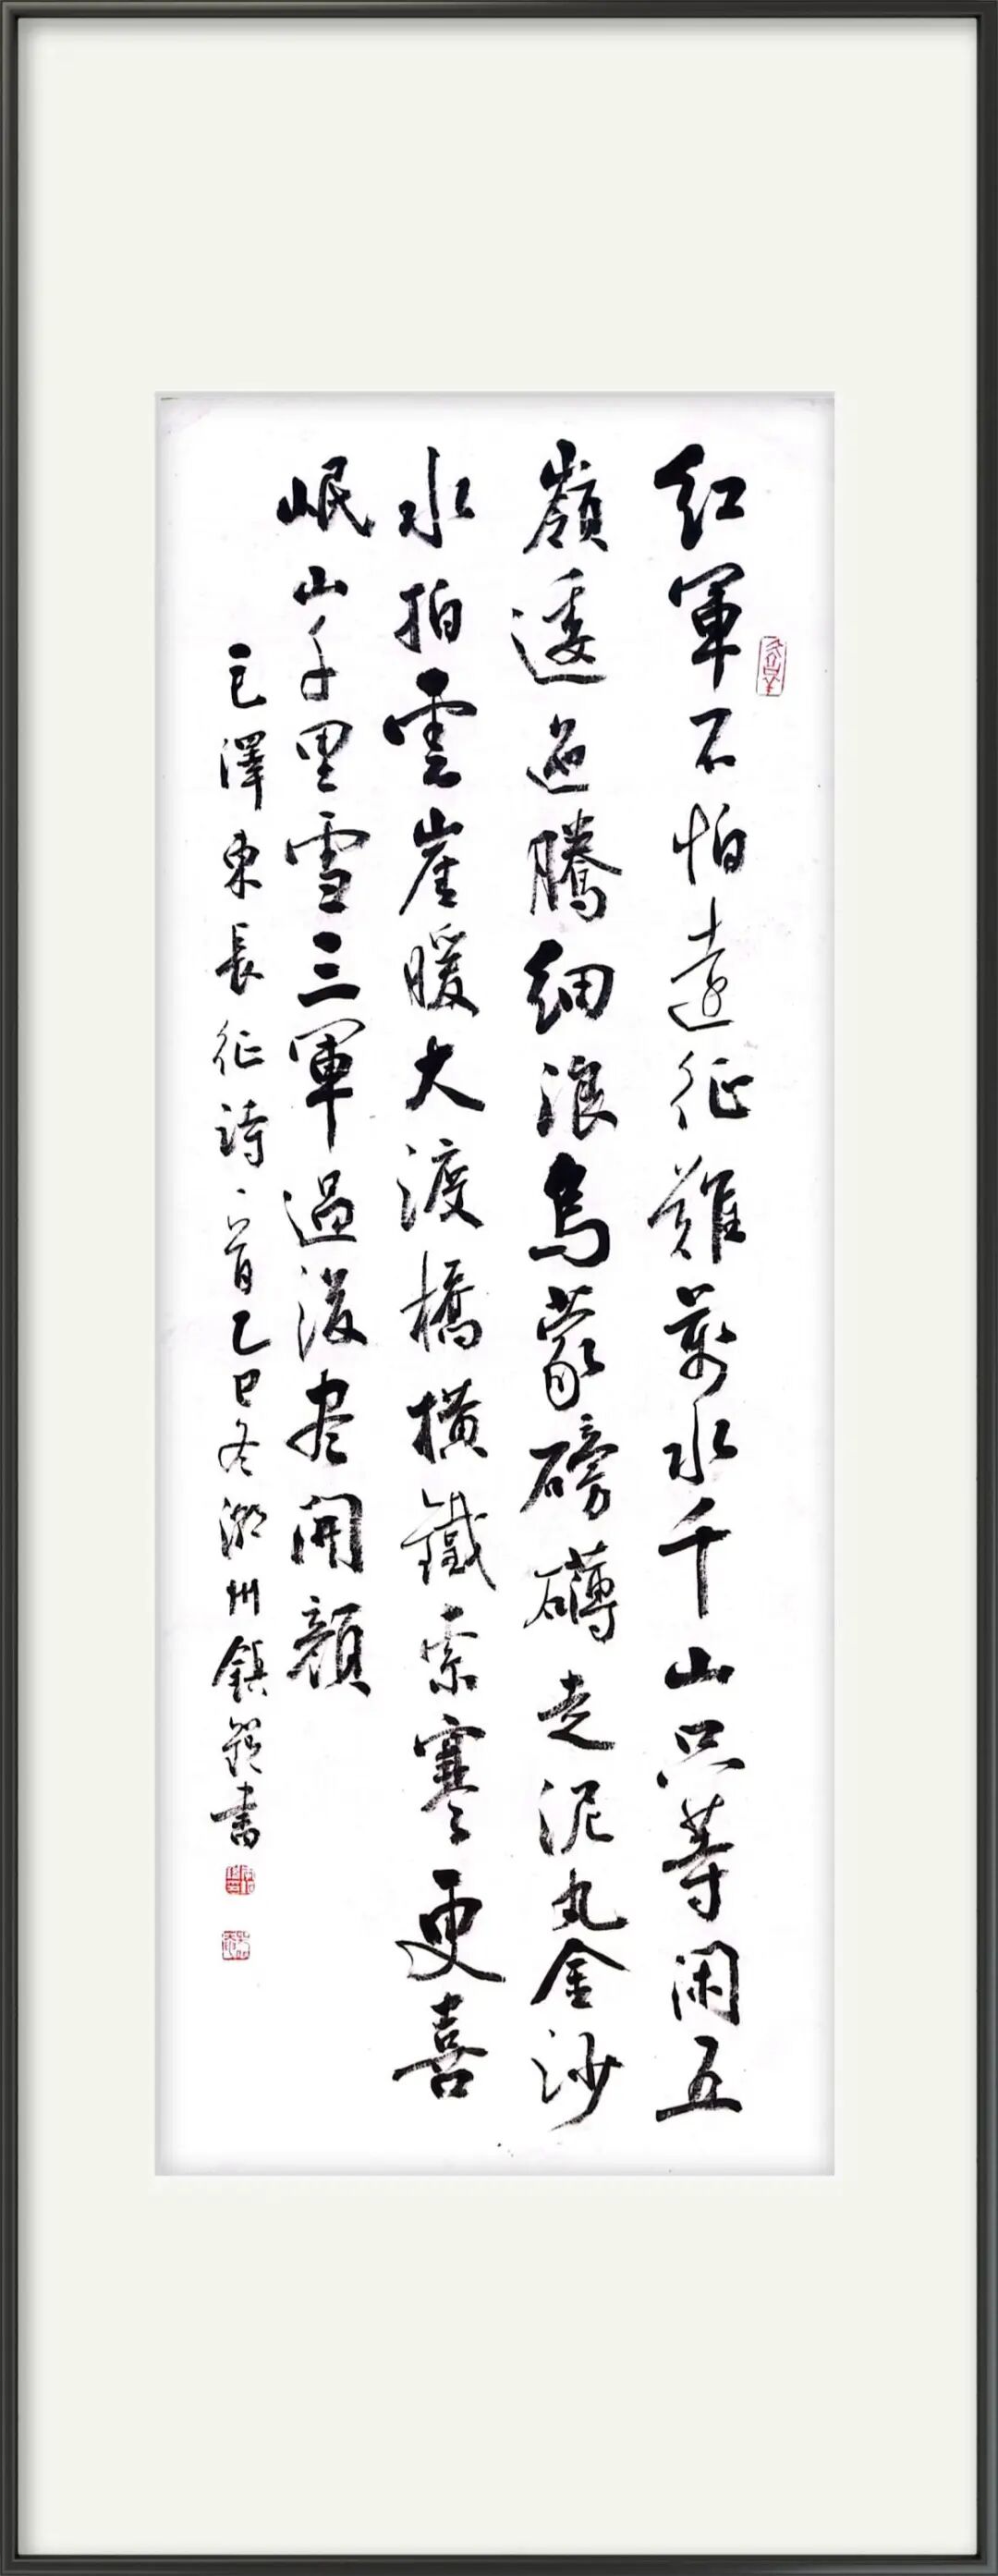 紅軍不怕遠征難萬水千山只等閑五
嶺逶迤騰細浪烏蒙磅礴走泥丸金沙
水拍雲崖暖大渡橋橫鐵索寒更喜
岷山千里雪三軍過後尽開顔
毛澤東長征詩一首乙巳冬潮州鎮書